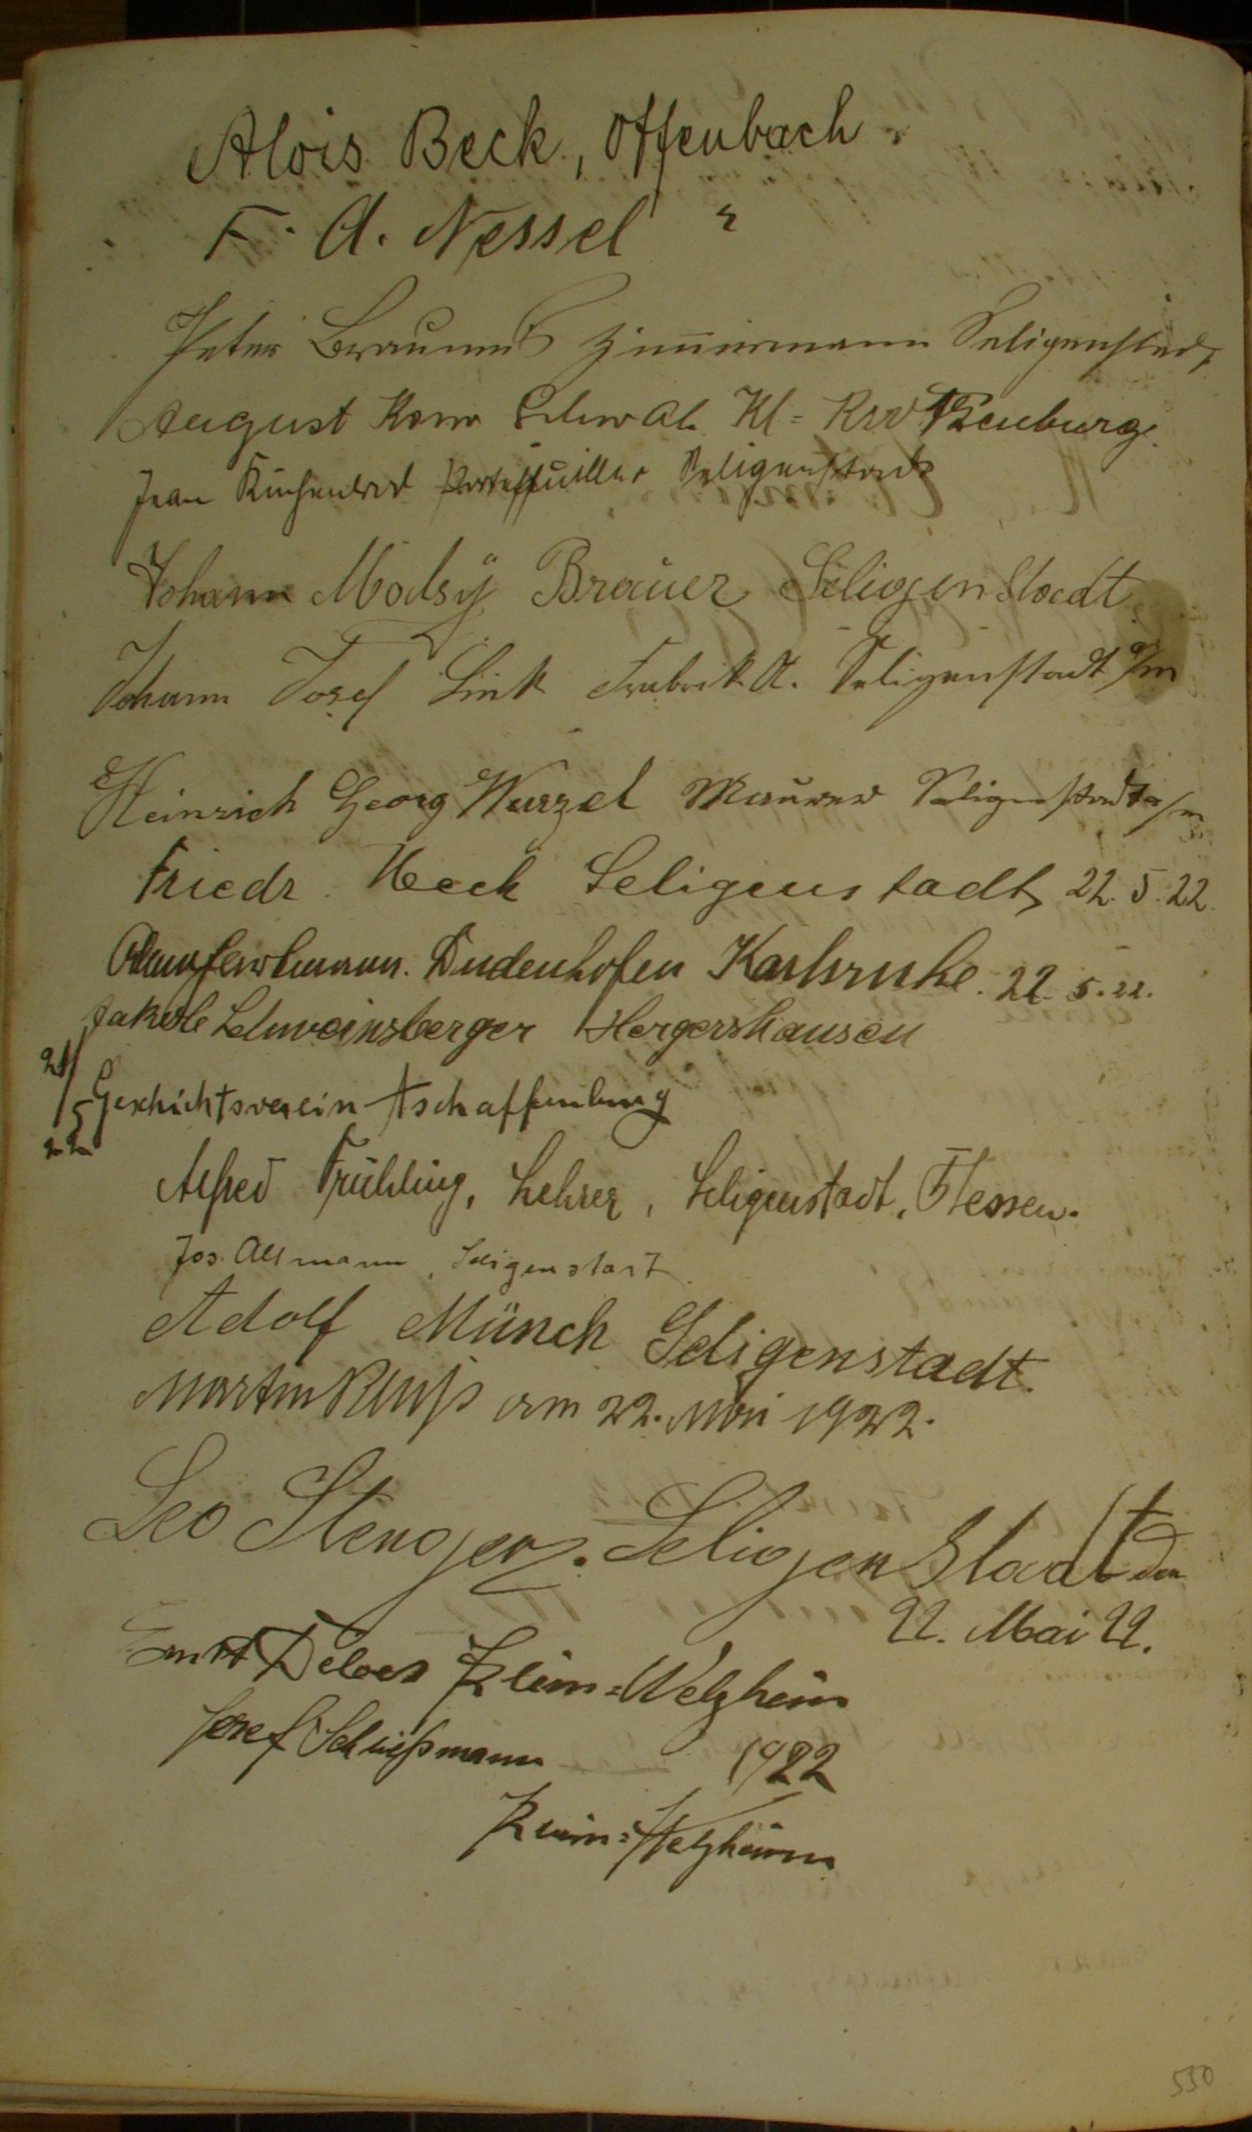 Alois Beck, Offenbach.
F. A. Nessel "
Peter Braun Zimmermann Seligenstadt
August Konr Schwab Kl-Krotzenburg.
Jean Portefeuiller Seligenstadt
Johann Modsy Brauer Seligenstadt
Johann Josef Link Fabrik A. Seligenstadt a/m
Heinrich Georg Wurzel Maurer Seligenstadt a/m
Friedr. Heck Seligenstadt, 22.5.22.
Dudenhofen Karlsruhe. 22.5.22.
Jakob Schweinsberger Hergershausen
21/5 22 Geschichtsverein Aschaffenburg
Alfred Frühling, Lehrer, Seligenstadt, Hessen.
Jos. Allmann, Seligenstadt.
Adolf Münch Seligenstadt.
Martin am 22. Mai 1922.
Leo Stenger. Seligenstadt den
22. Mai 22.
Ernst Klein-Welzheim
Josef Schließmann 1922
Klein-Welzheim
550